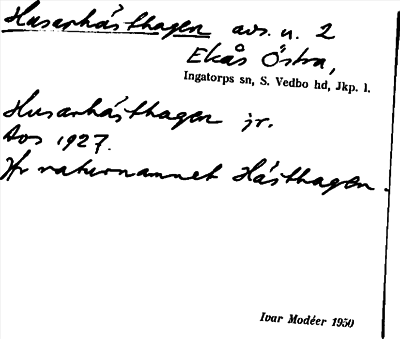 Husarhästhagen avs. n. 2
Ekås Östra,
Ingatorps sn, S. Vedbo hd, Jkp. l.
Husarhästhagen jr.
Aos 1927.
Jfr naturnamnet Hästhagen.
Ivar Modéer 1950